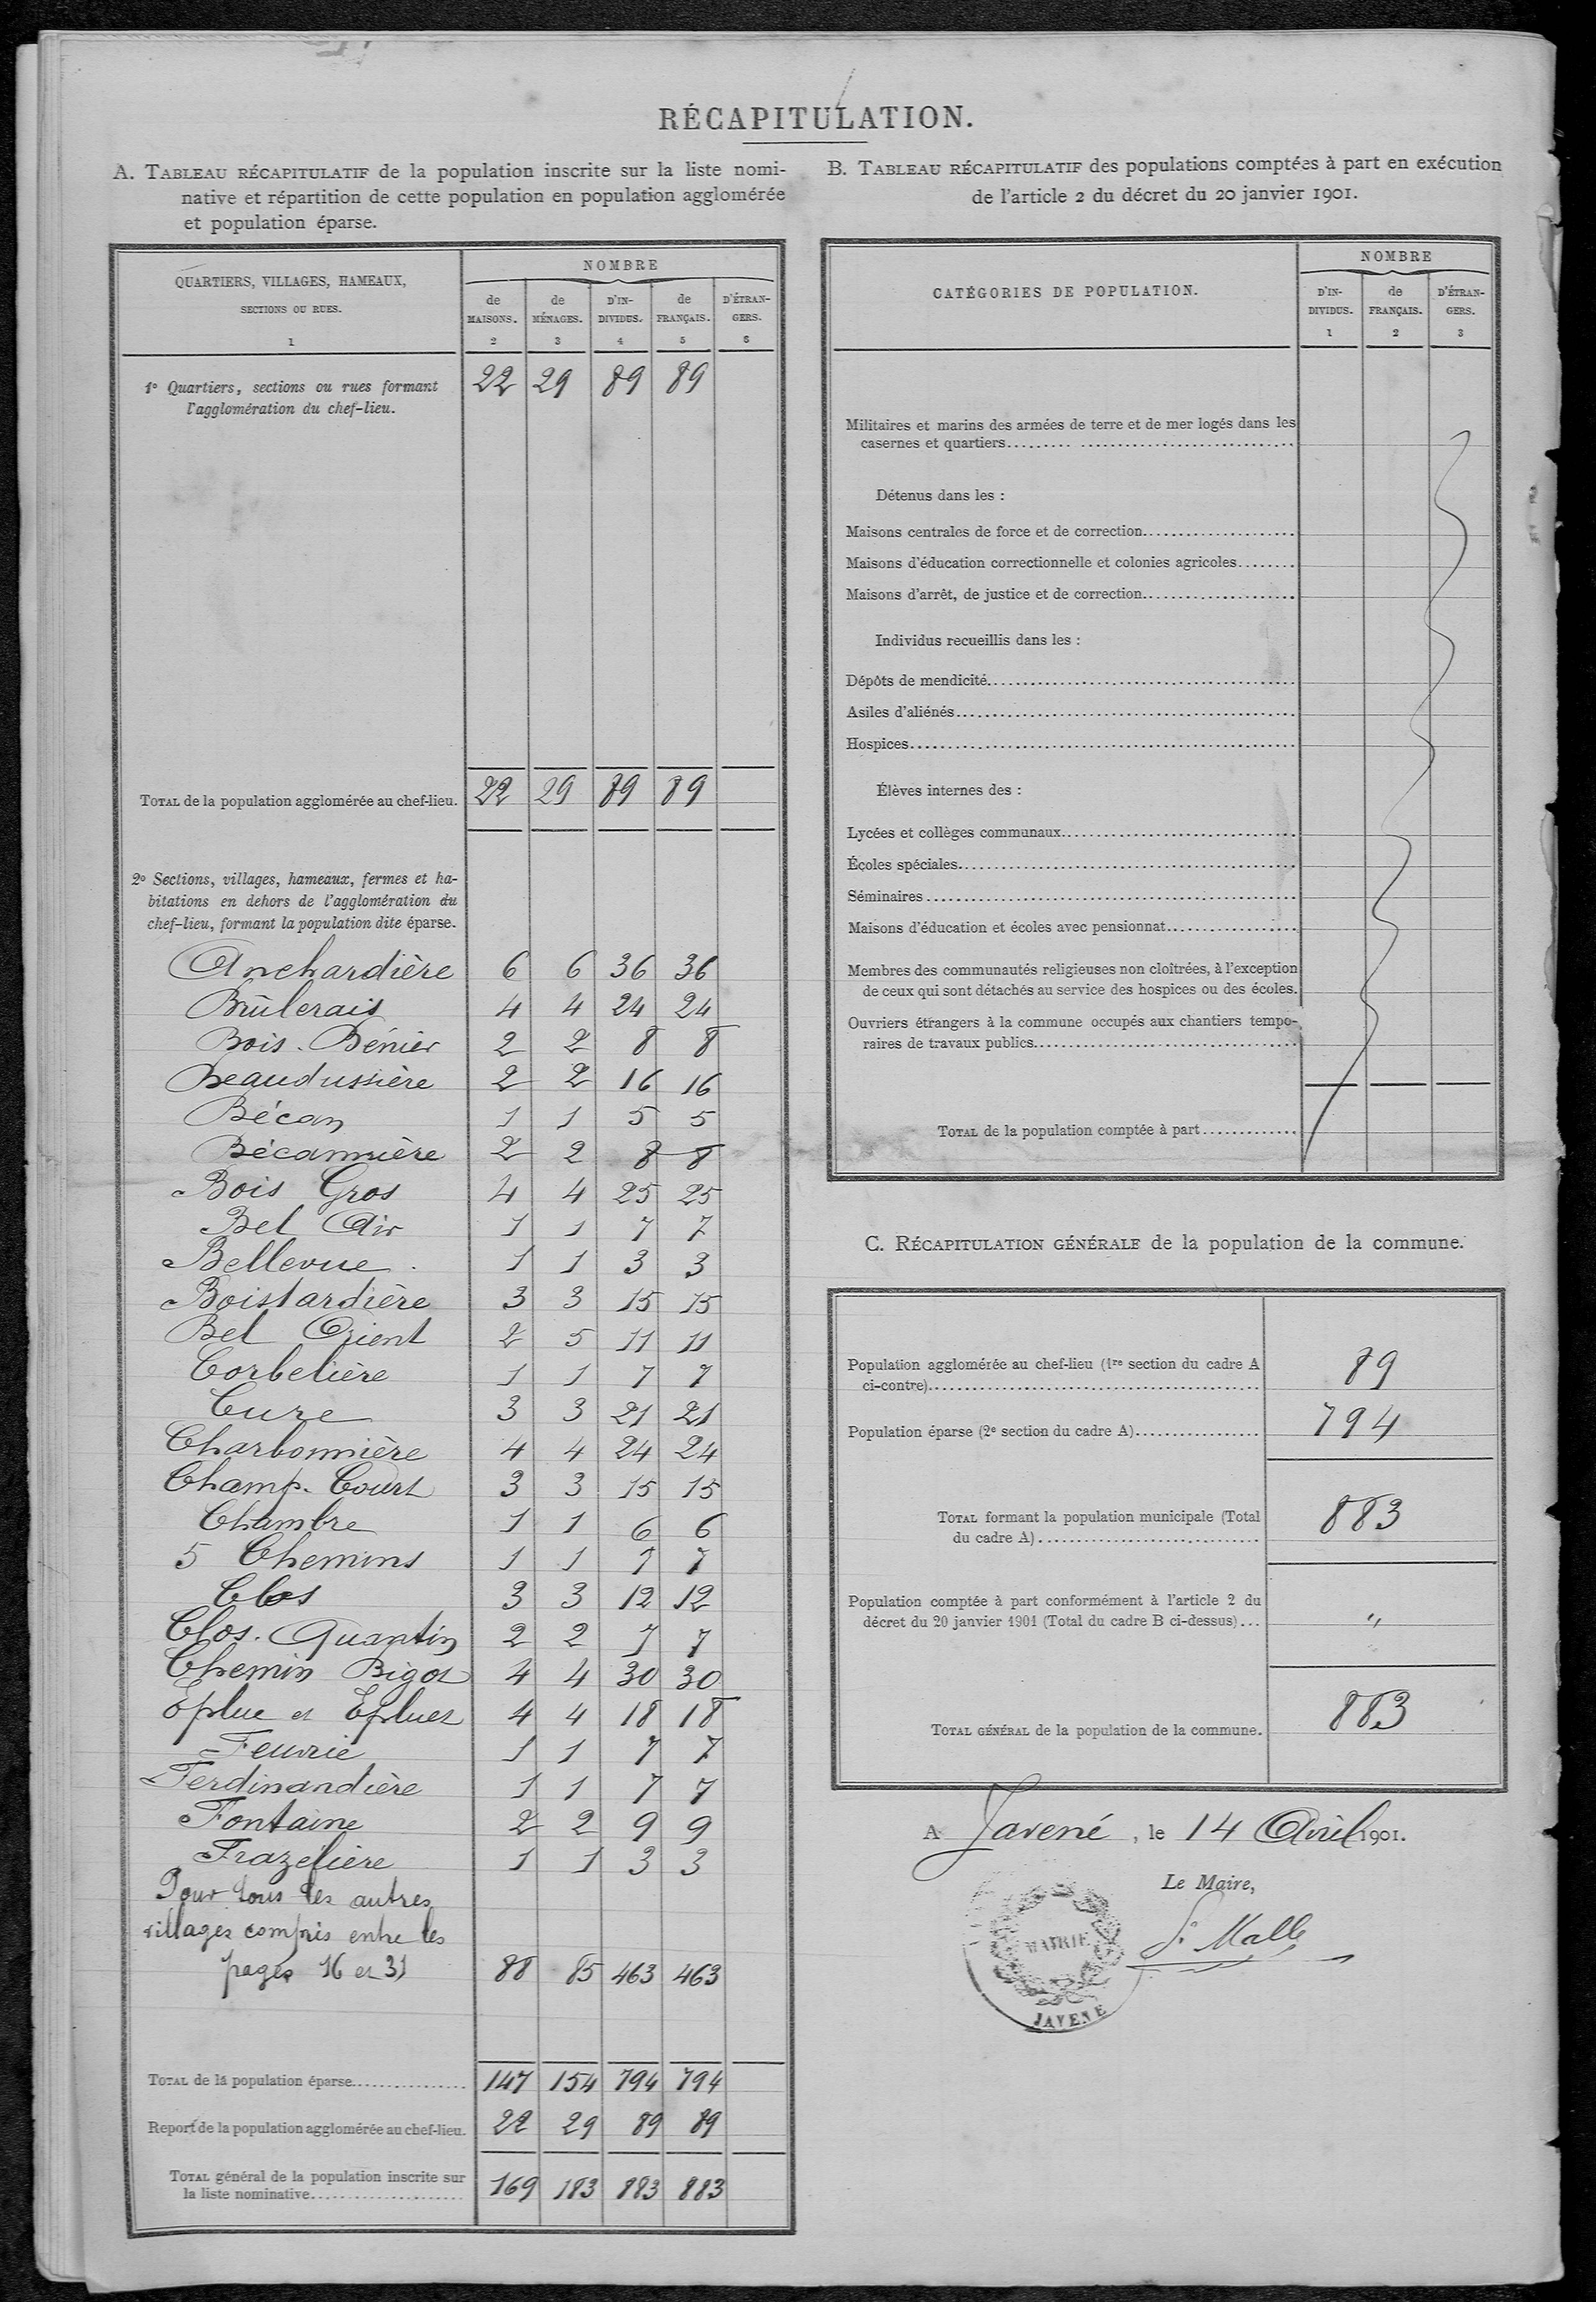 RÉCAPITULATION.
A. TABLEAU RÉCAPITULATIF de la population inscrite sur la liste nomi-
native et répartition de cette population en population agglomérée
et population éparse.
QUARTIERS, VILLAGES, HAMEAUX,
SECTIONS OU RUES.
1
NOMBRE
de MAISONS. 2
de MÉNAGES. 3
D'IN-DIVIDUS. 4
de FRANÇAIS. 5
D'ÉTRAN-GERS. 6
1° Quartiers, sections ou rues formant 22 29 89 89
l'agglomération du chef-lieu.
TOTAL de la population agglomérée au chef-lieu. 22 29 89 89
2° Sections, villages, hameaux, fermes et ha-
bitations en dehors de l'agglomération du
chef-lieu, formant la population dite éparse.
Anchardière 6 6 36 36
Brûlerais 4 4 24 24
Bois-Bénier 2 2 8 8
Beaudussière 2 2 16 16
Bécan 1 1 5 5
Bécannière 2 2 8 8
Bois Gros 4 4 25 25
Bel Air 1 1 7 7
Bellevue 1 1 3 3
Boistardière 3 3 15 15
Bel Orient 2 5 11 11
Corbelière 1 1 7 7
Cure 3 3 21 21
Charbonnière 4 4 24 24
Champ-Court 3 3 15 15
Chambre 1 1 6 6
5 Chemins 1 1 7 7
Clos 3 3 12 12
Clos-Quantin 2 2 7 7
Chemin Bigot 4 4 30 30
Eplue et Epluet 4 4 18 18
Feuvrie 1 1 7 7
Ferdinandière 1 1 7 7
Fontaine 2 2 9 9
Frazelière 1 1 3 3
Pour tous les autres
villages compris entre les
pages 16 et 31 88 85 463 463
TOTAL de la population éparse 147 154 794 794
Report de la population agglomérée au chef-lieu. 22 29 89 89
TOTAL général de la population inscrite sur
la liste nominative 169 183 883 883
B. TABLEAU RÉCAPITULATIF des populations comptées à part en exécution
de l'article 2 du décret du 20 janvier 1901.
CATÉGORIES DE POPULATION.
NOMBRE
D'IN-DIVIDUS. 1
de FRANÇAIS. 2
D'ÉTRAN-GERS. 3
Militaires et marins des armées de terre et de mer logés dans les
casernes et quartiers
Détenus dans les :
Maisons centrales de force et de correction
Maisons d'éducation correctionnelle et colonies agricoles
Maisons d'arrêt, de justice et de correction
Individus recueillis dans les :
Dépôts de mendicité
Asiles d'aliénés
Hospices
Élèves internes des :
Lycées et collèges communaux
Écoles spéciales
Séminaires
Maisons d'éducation et écoles avec pensionnat
Membres des communautés religieuses non cloîtrées, à l'exception
de ceux qui sont détachés au service des hospices ou des écoles.
Ouvriers étrangers à la commune occupés aux chantiers tempo-
raires de travaux publics
TOTAL de la population comptée à part
C. RÉCAPITULATION GÉNÉRALE de la population de la commune.
Population agglomérée au chef-lieu (1re section du cadre A
ci-contre) 89
Population éparse (2e section du cadre A) 794
TOTAL formant la population municipale (Total
du cadre A) 883
Population comptée à part conformément à l'article 2 du
décret du 20 janvier 1901 (Total du cadre B ci-dessus) "
TOTAL GÉNÉRAL de la population de la commune. 883
A Javené, le 14 Avril 1901.
Le Maire,
MAIRIE
JAVENÉ